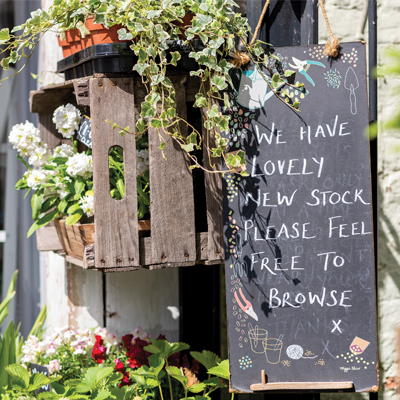 We have
lovely
new stock
please feel
free to
browse
x